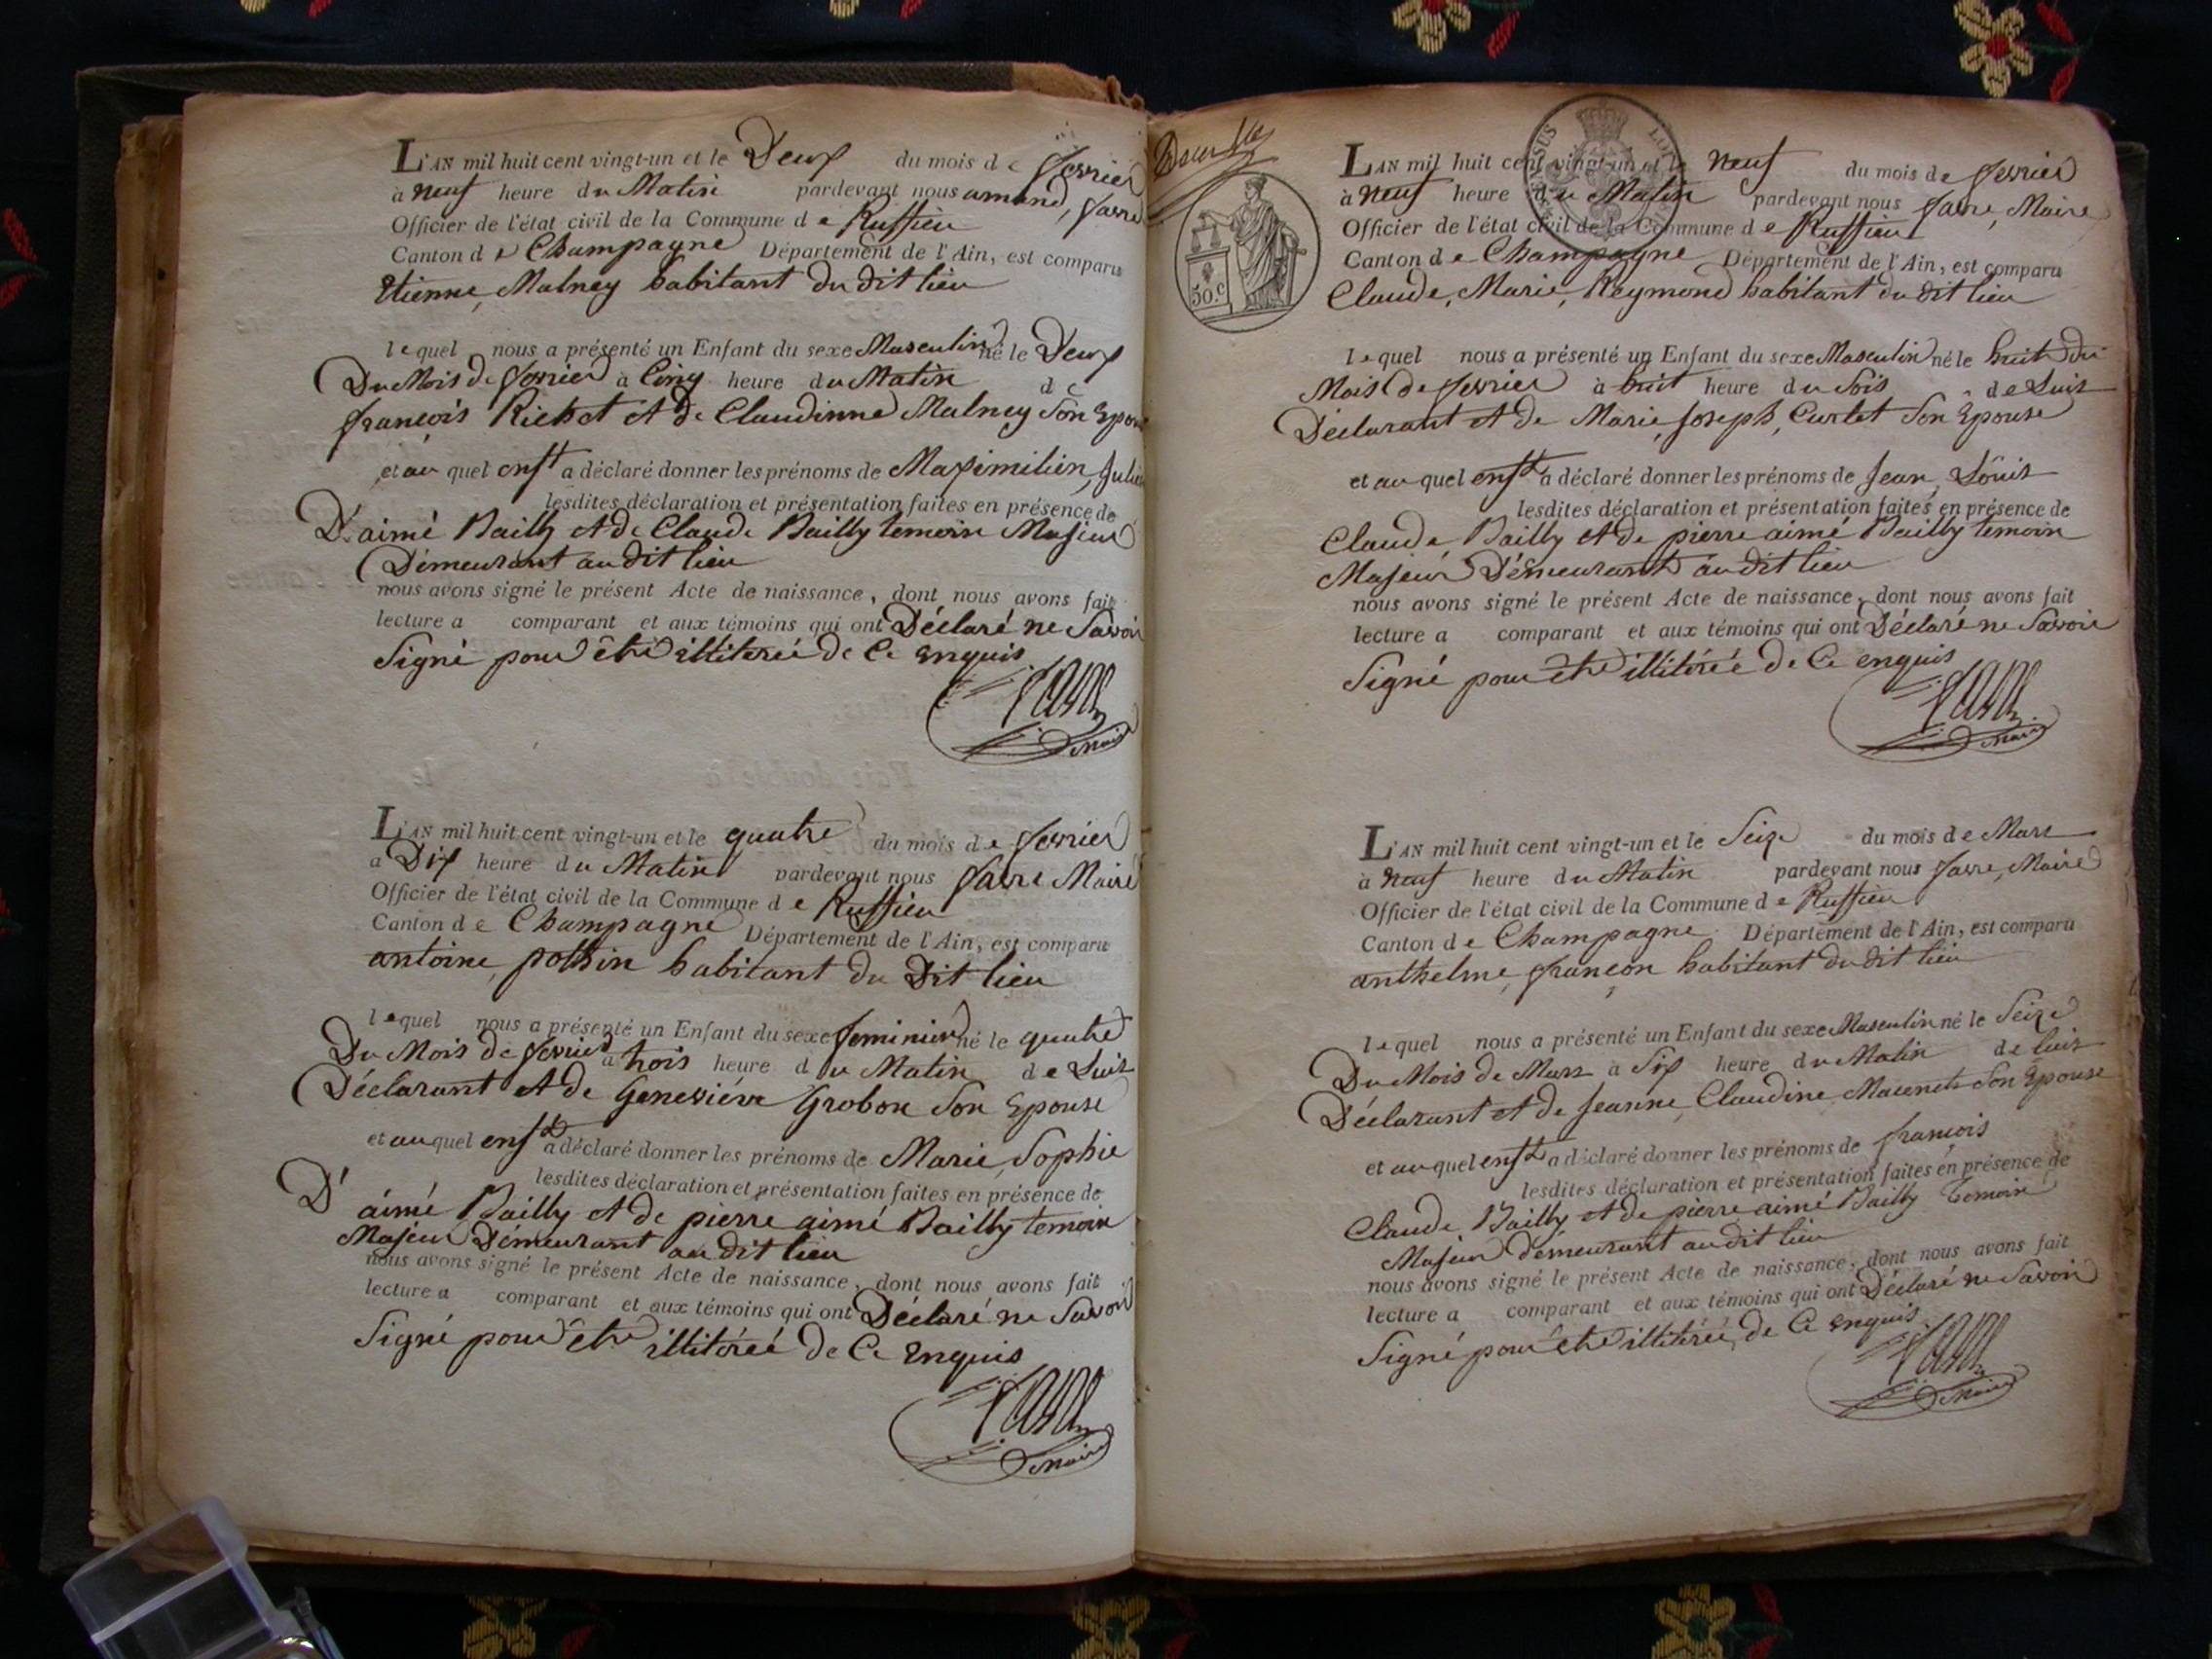 L'AN mil huit cent vingt-un et le Deux du mois de fevrier
à neuf heure du Matin pardevant nous amand, favre
Officier de l'état civil de la Commune de Ruffieu
Canton de Champagne Département de l'Ain, est comparu
Etienne, Malney habitant du dit lieu
lequel nous a présenté un Enfant du sexe Masculin né le Deux
Du Mois de fevrier à Cinq heure du Matin de
françois Richet et de Claudinne Malney Son Epouse
et au quel enft a déclaré donner les prénoms de Maximilien, Julien
lesdites déclaration et présentation faites en présence de
D'aimé Bailly et de Claude Bailly temoin Majeur
Demeurant au dit lieu
nous avons signé le présent Acte de naissance, dont nous avons fait
lecture a comparant et aux témoins qui ont Déclaré ne Savoir
Signé pour être illiterée de Ce enquis
favre
Maire
L'AN mil huit cent vingt-un et le quatre du mois de fevrier
a Dix heure du Matin pardevant nous favre Maire
Officier de l'état civil de la Commune de Ruffieu
Canton de Champagne Département de l'Ain, est comparu
antoine, pothin habitant du Dit lieu
lequel nous a présenté un Enfant du sexe feminien né le quatre
Du Mois de fevrier a trois heure du Matin de Luit
Déclarant et de Geneviéve Grobon Son Epouse
et au quel enft a déclaré donner les prénoms de Marie, Sophie
lesdites déclaration et présentation faites en présence de
D'aimé Bailly et de pierre aimé Bailly temoin
Majeur Démeurant au dit lieu
nous avons signé le présent Acte de naissance, dont nous avons fait
lecture a comparant et aux témoins qui ont Déclaré ne Savoir
Signé pour être illitérée de Ce Enquis
favre
Maire
LOUIS
50.c
L'AN mil huit cent vingt-un et le neuf du mois de fevrier
à neuf heure du Matin pardevant nous favre, Maire
Officier de l'état civil de la Commune de Ruffieu
Canton de Champagne Département de l'Ain, est comparu
Claude, Marie, Reymond habitant du dit lieu
lequel nous a présenté un Enfant du sexe Masculin né le huit du
Mois de fevrier à huit heure du Sois de Luit
Déclarant et de Marie, Joseph, Curtet Son Epouse
et au quel enft a déclaré donner les prénoms de Jean, Louis
lesdites déclaration et présentation faites en présence de
Claude Bailly et de pierre aimé Bailly temoin
Majeur Démeurant au dit lieu
nous avons signé le présent Acte de naissance, dont nous avons fait
lecture a comparant et aux témoins qui ont Déclaré ne Savoir
Signé pour être illitérée de Ce enquis
favre
Maire
L'AN mil huit cent vingt-un et le Seize du mois de Mars
à neuf heure du Matin pardevant nous favre, Maire
Officier de l'état civil de la Commune de Ruffieu
Canton de Champagne Département de l'Ain, est comparu
anthelme, françon habitant du dit lieu
lequel nous a présenté un Enfant du sexe Masculin né le Seize
Du Mois de Mars à Six heure du Matin de luit
Déclarant et de Jeanne, Claudine, Son Epouse
et au quel enft a déclaré donner les prénoms de françois
lesdites déclaration et présentation faites en présence de
Claude, Bailly et de pierre aimé Bailly temoin
Majeur démeurant au dit lieu
nous avons signé le présent Acte de naissance, dont nous avons fait
lecture a comparant et aux témoins qui ont Déclaré ne Savoir
Signé pour être illitérée, de Ce Enquis
favre
Maire